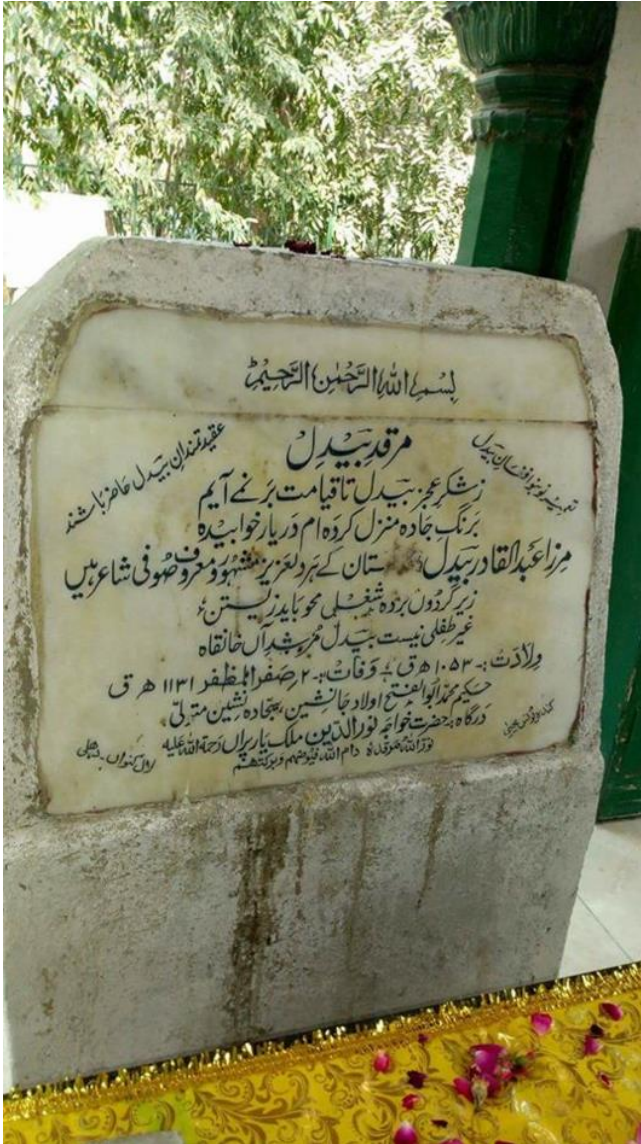 بسم الله الرحمن الرحیم
مرقد بیدل
عقیدتمندان بیدل حاضر باشند
بیدل
زشکر عجز بیدل تا قیامت بر نمے آیم
برنگ جاده منزل کرده ام در یار خوابیده
مرزا عبدالقادر بیدل ستان کے ہردلعزیز مشہور و معروف صوفی شاعر ہیں
زیر گردوں برده شغلی محو باید زیستن
غیر طفلی نیست بیدل مرشد آں خانقاه
ولادت :- ۱۰۵۳ ھ ق وفات :- ۲ صفر المظفر ۱۱۳۱ ھ ق
حکیم محمد ابوالفتح اولاد جانشین سجاده نشین متولی
درگاه :- حضرت خواجہ نورالدین ملک یار پراں رحمۃ اللہ علیہ
نور اللہ مرقده دام اللہ فیوضہم وبرکتہم